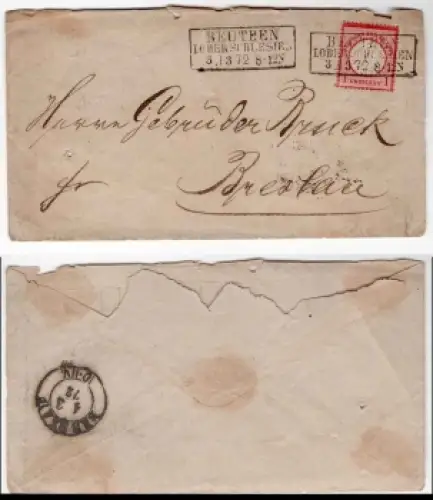 BEUTHEN
I.OBERSCHLESIEN
3 13 72 8-12N
B
I.OBER
EN
3 13 72 8-12N
1 1
Herren Gebrüder Bruck
Breslau
1 3
72